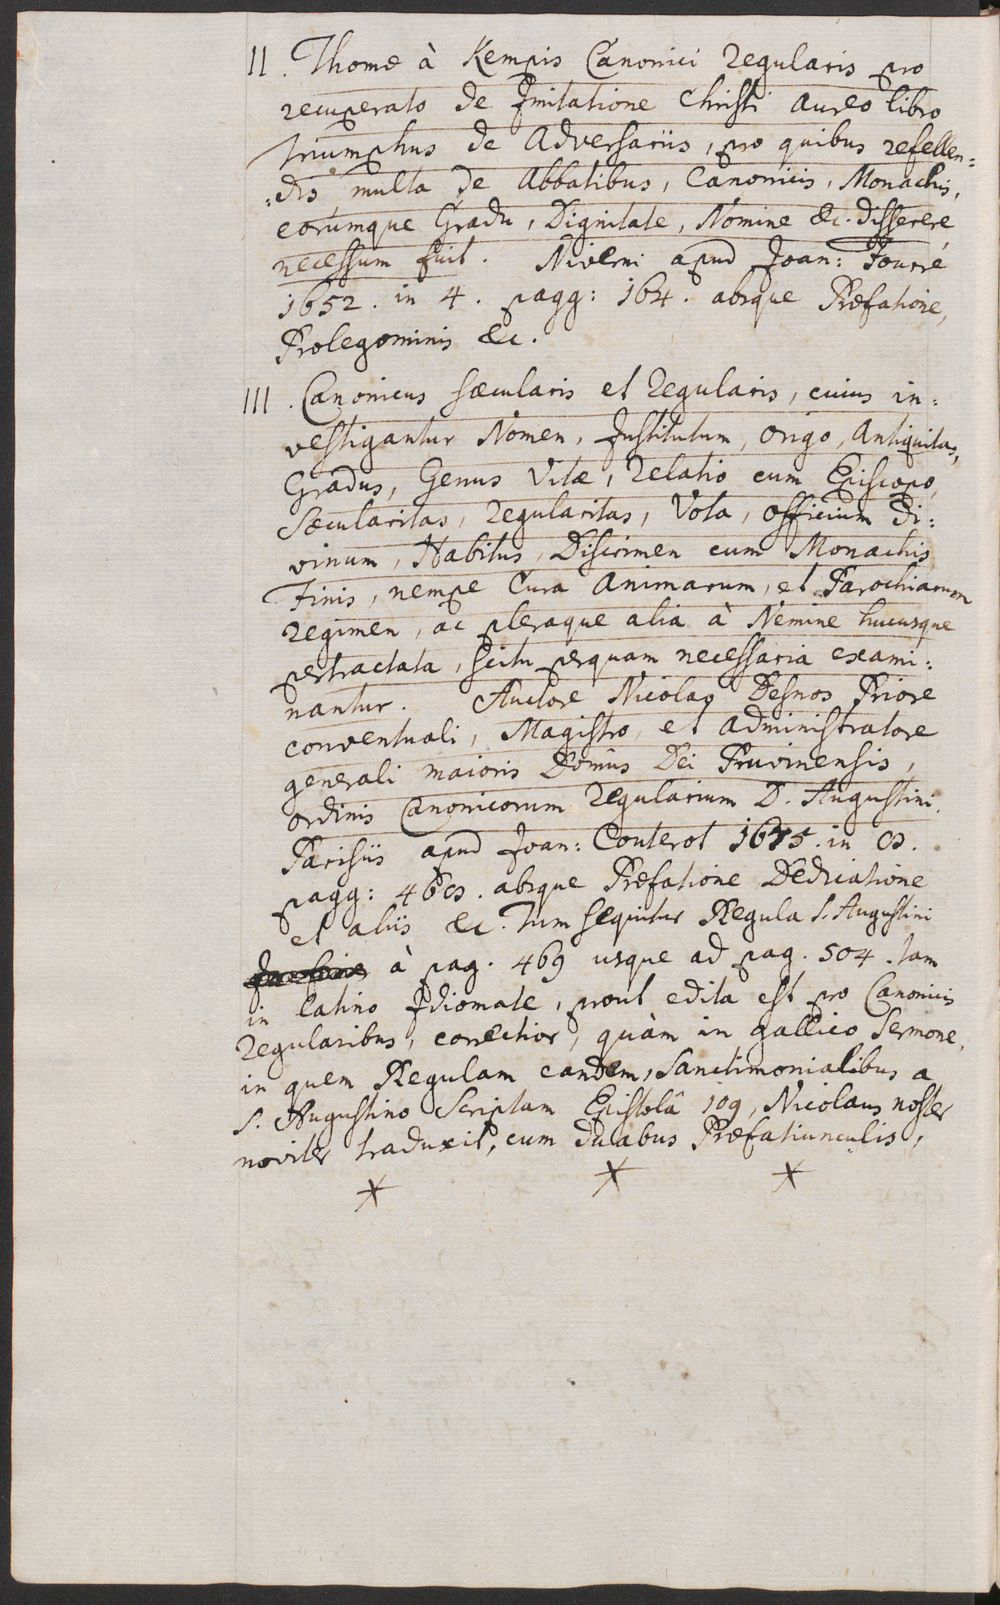 II. Thomæ à Kempis Canonici Regularis pro
recuperato de Imitatione Christi aureo libro
triumphus de Adversariis, pro quibus refellen=
=dis multa de Abbatibus, Canonicis, Monachis,
eorumque Gradu, Dignitate, Nomine &c. disserere
necessum fuit. Niverni apud Joan: Fourré
1652. in 4. pagg: 164. absque Præfatione,
Prolegominis &c.
III. Canonicus sæcularis et Regularis, cuius in=
vestigantur Nomen, Institutum, origo, Antiquitas,
Gradus, Genus Vitæ, Relatio cum Episcopo,
Sæcularitas, Regularitas, Vota, officium di=
vinum, Habitus, Discrimen cum Monachis,
Finis, nempe Cura Animarum, et Parochiarum
regimen, ac pleraque alia à Nemine hucusque
pertractata, scitu perquam necessaria exami=
nantur. Auctore Nicolao Desnos Priore
conventuali, Magistro, et administratore
generali maioris Domûs Dei Pruvinensis,
ordinis Canonicorum Regularium D. Augustini.
Parisiis apud Joan: Couterot 1675. in 8.
pagg: 468. absque Præfatione Dedicatione
et aliis &c. Tum sequitur Regula S. Augustini
à pag. 469 usque ad pag. 504. tam
in latino Idiomate, prout edita est pro Canonicis
Regularibus, correctior, quàm in gallico Sermone,
in quem Regulam eandem, Sanctimonialibus a
S. Augustino Scriptam Epistolâ 109, Nicolaus noster
noviter traduxit, cum duabus Præfatiunculis,